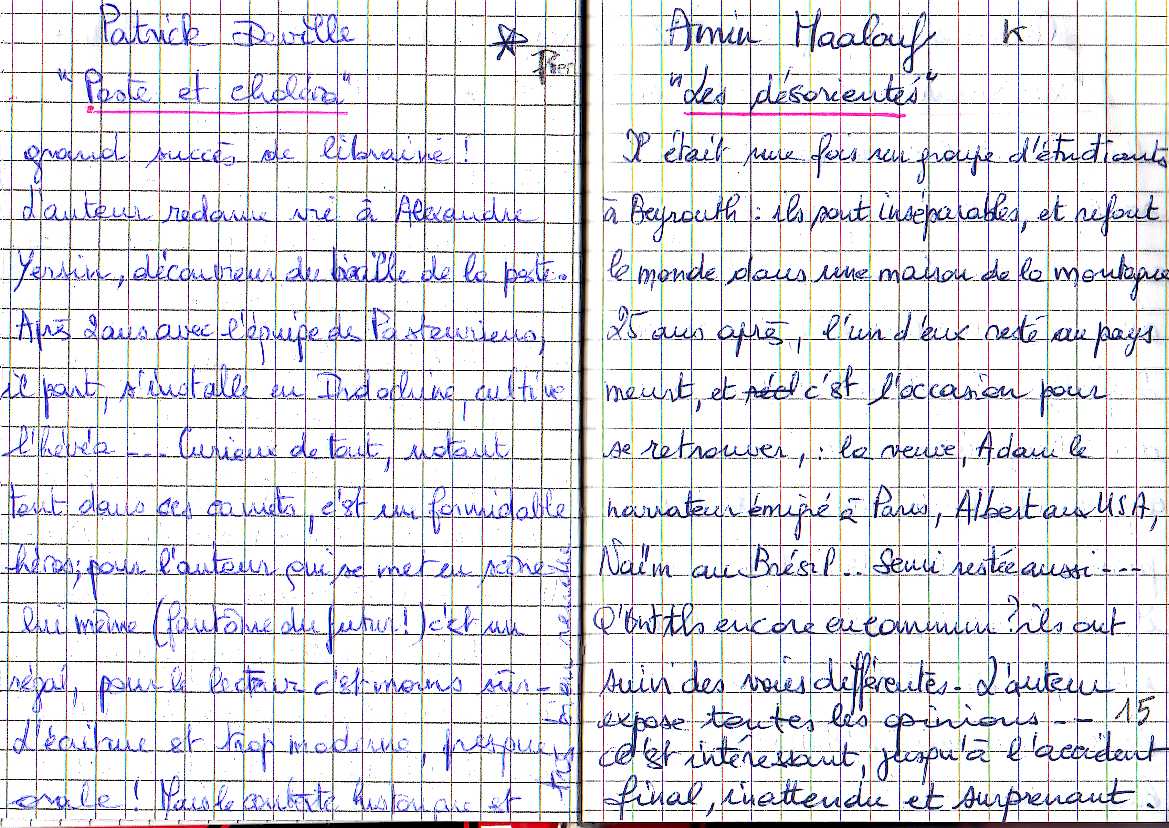 Patrick Deville
"Peste et choléra"
grand succès de librairie !
L'auteur redonne vie à Alexandre
Yersin, découvreur du bacille de la peste.
Après 2 ans avec l'équipe des Pasteuriens,
il part, s'installe en Indochine, cultive
l'hévéa --- Curieux de tout, notant
tout dans ces carnets, c'est un formidable
héros; pour l'auteur qui se met en scène
lui même (fantôme du futur!) c'est un
régal, pour le lecteur c'est moins sûr -
L'écriture est trop moderne, presque
orale ! Mais le contexte historique est
très bien
Amin Maalouf K
"Les désorientés"
Il était une fois un groupe d'étudiants
à Beyrouth : ils sont inséparables, et refont
le monde dans une maison de la montagne
25 ans après, l'un d'eux resté au pays
meurt, et c'est l'occasion pour
se retrouver, : la veuve, Adam le
narrateur émigré à Paris, Albert aux USA,
Naïm au Brésil .. Semi restée aussi ---
Q'ont ils encore en commun ? ils ont
suivi des voies différentes - L'auteur
expose toutes les opinions -- 15
ce est intéressant, jusqu'à l'accident
final, inattendu et surprenant.